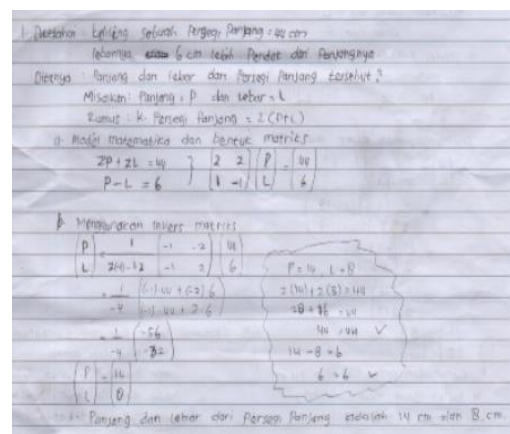 1. Diketahui : keliling sebuah Persegi Panjang = 44 cm
lebarnya 6 cm lebih Pendek dari Panjangnya
Ditanya : Panjang dan lebar dari Persegi Panjang tersebut ?
Misalkan : Panjang = P dan Lebar = L
Rumus : K. Persegi Panjang = 2 (P+L)
a. Model matematika dan bentuk matriks
2P + 2L = 44 } (2 2) (P) = (44)
P - L = 6 (1 -1) (L) (6)
b. Menggunakan Invers matriks
(P) = 1 (-1 -2) (44)
(L) 2(-1)-1.2 (-1 2) (6)
= 1 ((-1).44 + (-2) 6)
-4 ((-1).44 + 2.6)
= 1 (-56)
-4 (-32)
(P) = (14)
(L) (8)
P = 14, L = 8
2 (14) + 2 (8) = 44
28 + 16 = 44
44 = 44 ✓
14 - 8 = 6
6 = 6 ✓
Panjang dan lebar dari Persegi Panjang adalah 14 cm dan 8 cm